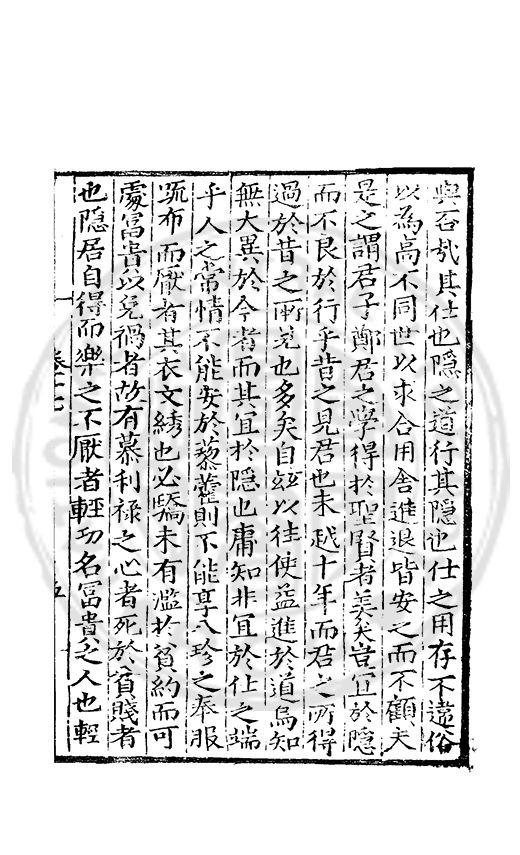 與否哉其仕也隐之道行其隐也仕之用存不遠俗
以為高不同世以求合用舍進退皆安之而不顧夫
是之謂君子鄭君之學得於聖賢者美矣豈宜於隱
而不良於行乎昔之見君也未越十年而君之所得
過於昔之所見也多矣自兹以往使益進於道烏知
無大異於今者而其宜於隐也庸知非宜於仕之端
乎人之常情不能安於藜藿則不能享八珍之奉服
䟽布而厭者其衣文綉也必驕未有濫於貧約而可
處富貴以免禍者故有慕利禄之心者死於貧賤者
也隐居自得而樂之不厭者輕功名冨貴之人也輕
卷十七
五